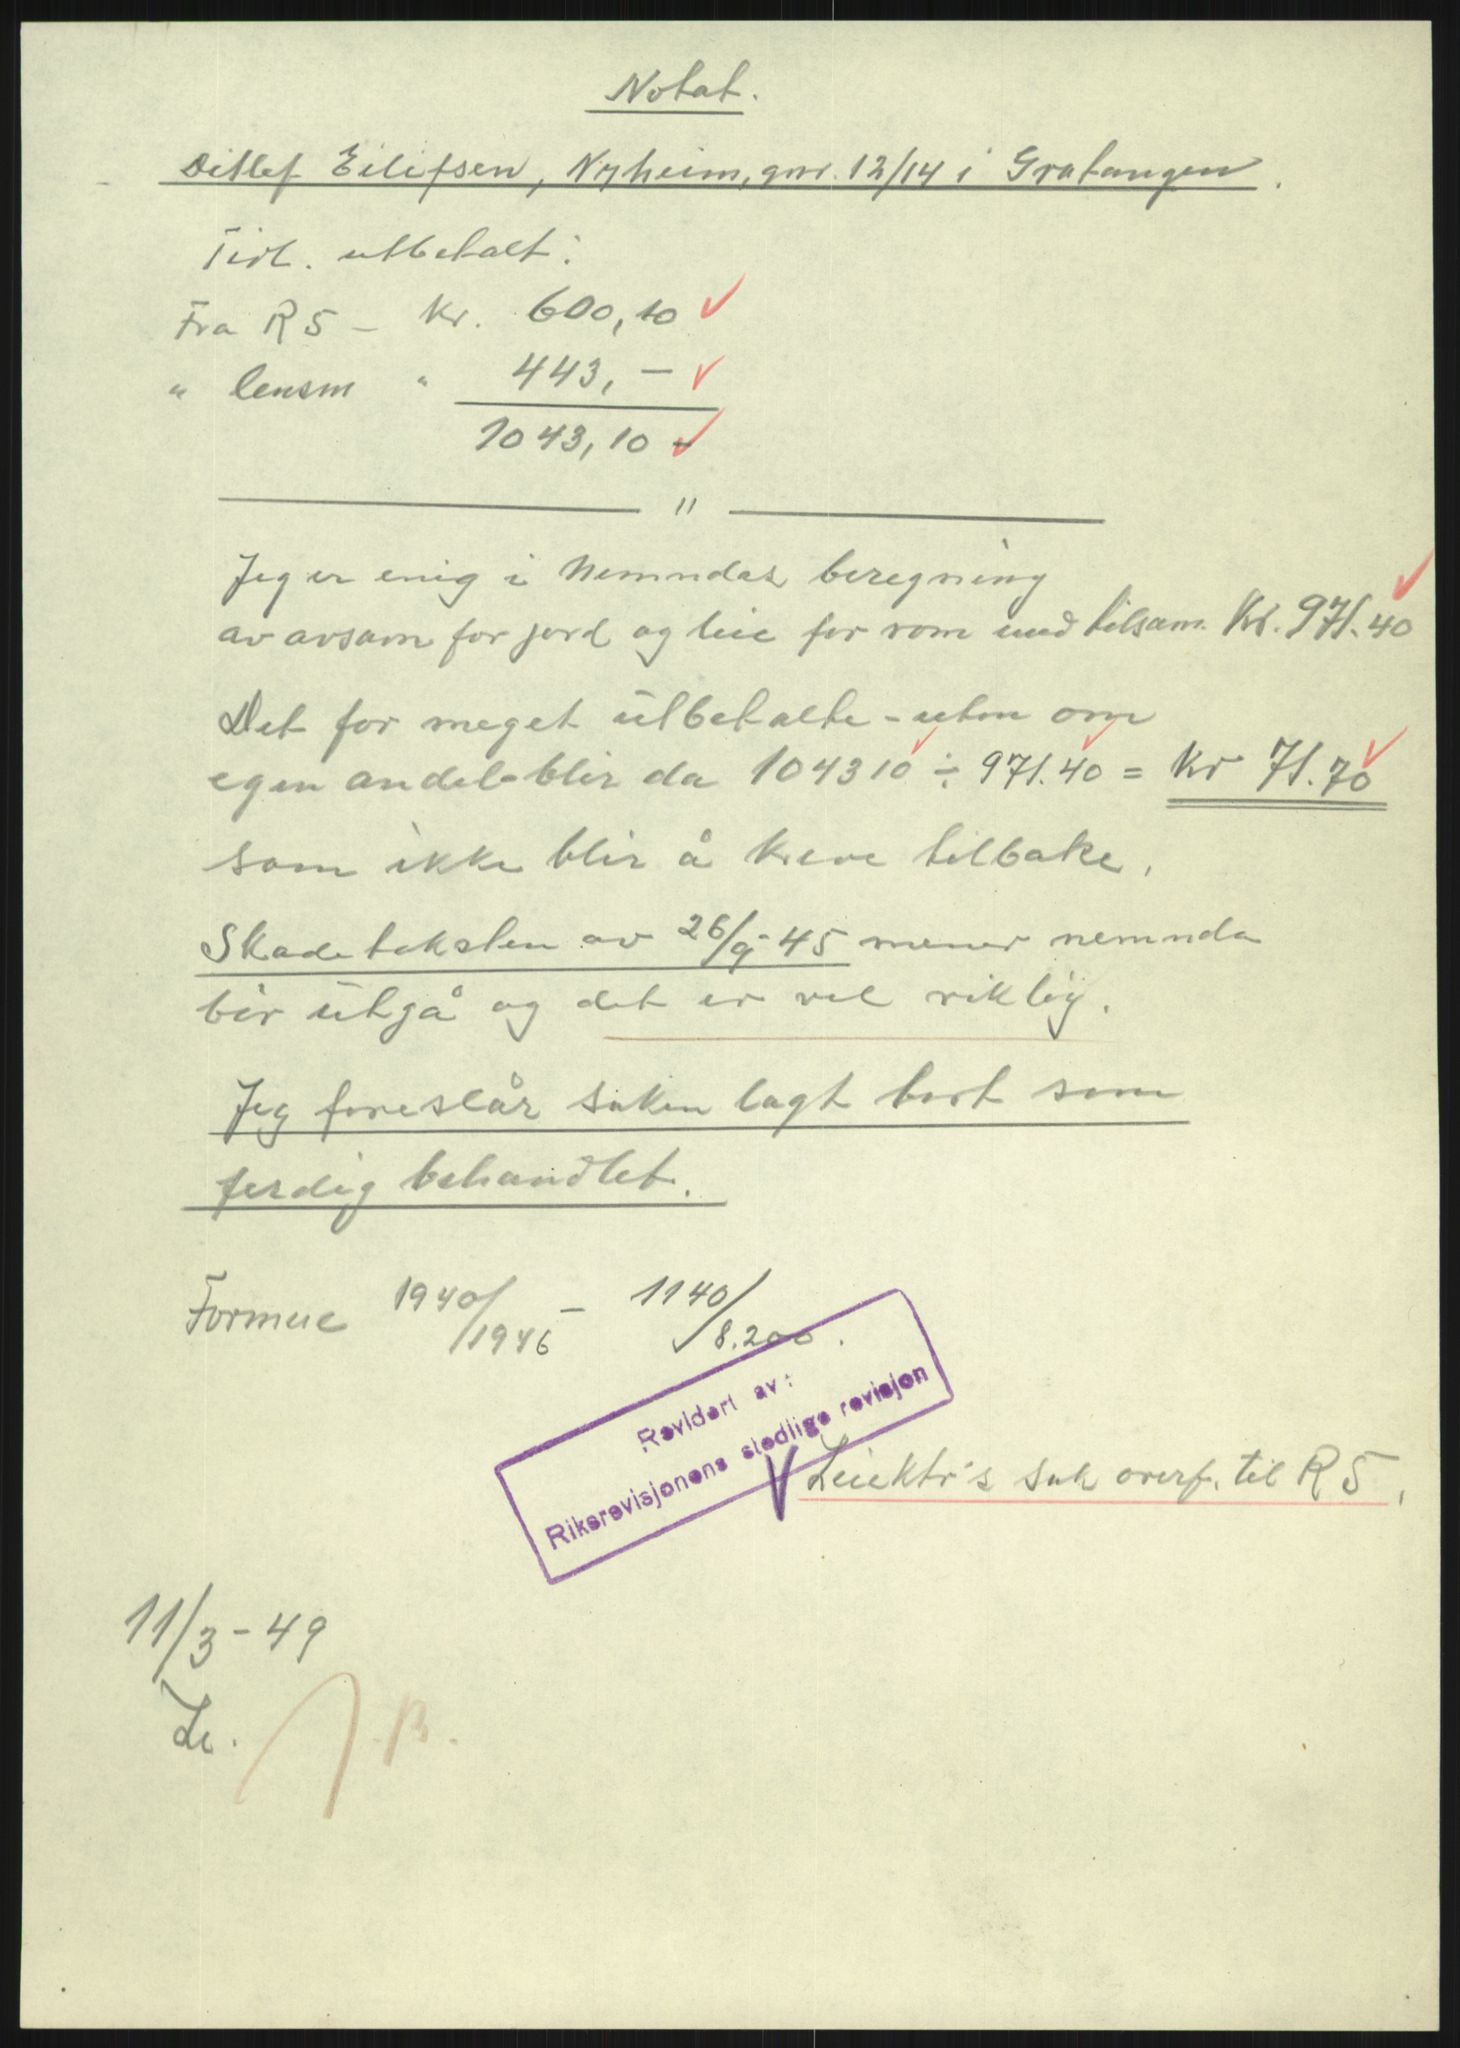 Notat.
Ditlef Eilifsen, Nyheim, gnr. 12/14 i Gratangen.
Tidl. utbetalt:
Fra R5 - Kr. 600,10
" lensm " 443,-
1043,10
"
Jeg er enig i Nemndas beregning
av avsavn for jord og leie for rom med tilsam. Kr. 971.40
Det for meget utbetalte - uten om
egen andel - blir da 1043 10 ÷ 971.40 = Kr 71.70
som ikke blir å kreve tilbake.
Skadetaksten av 26/9-45 mener nemnda
bør utgå og det er vel riktig.
Jeg foreslår saken lagt bort som
ferdig behandlet.
Formue 1940/1946 - 1140/8.200.
Revidert av:
Riksrevisjonens stedlige revisjon
V sak overf. til R5.
11/3-49